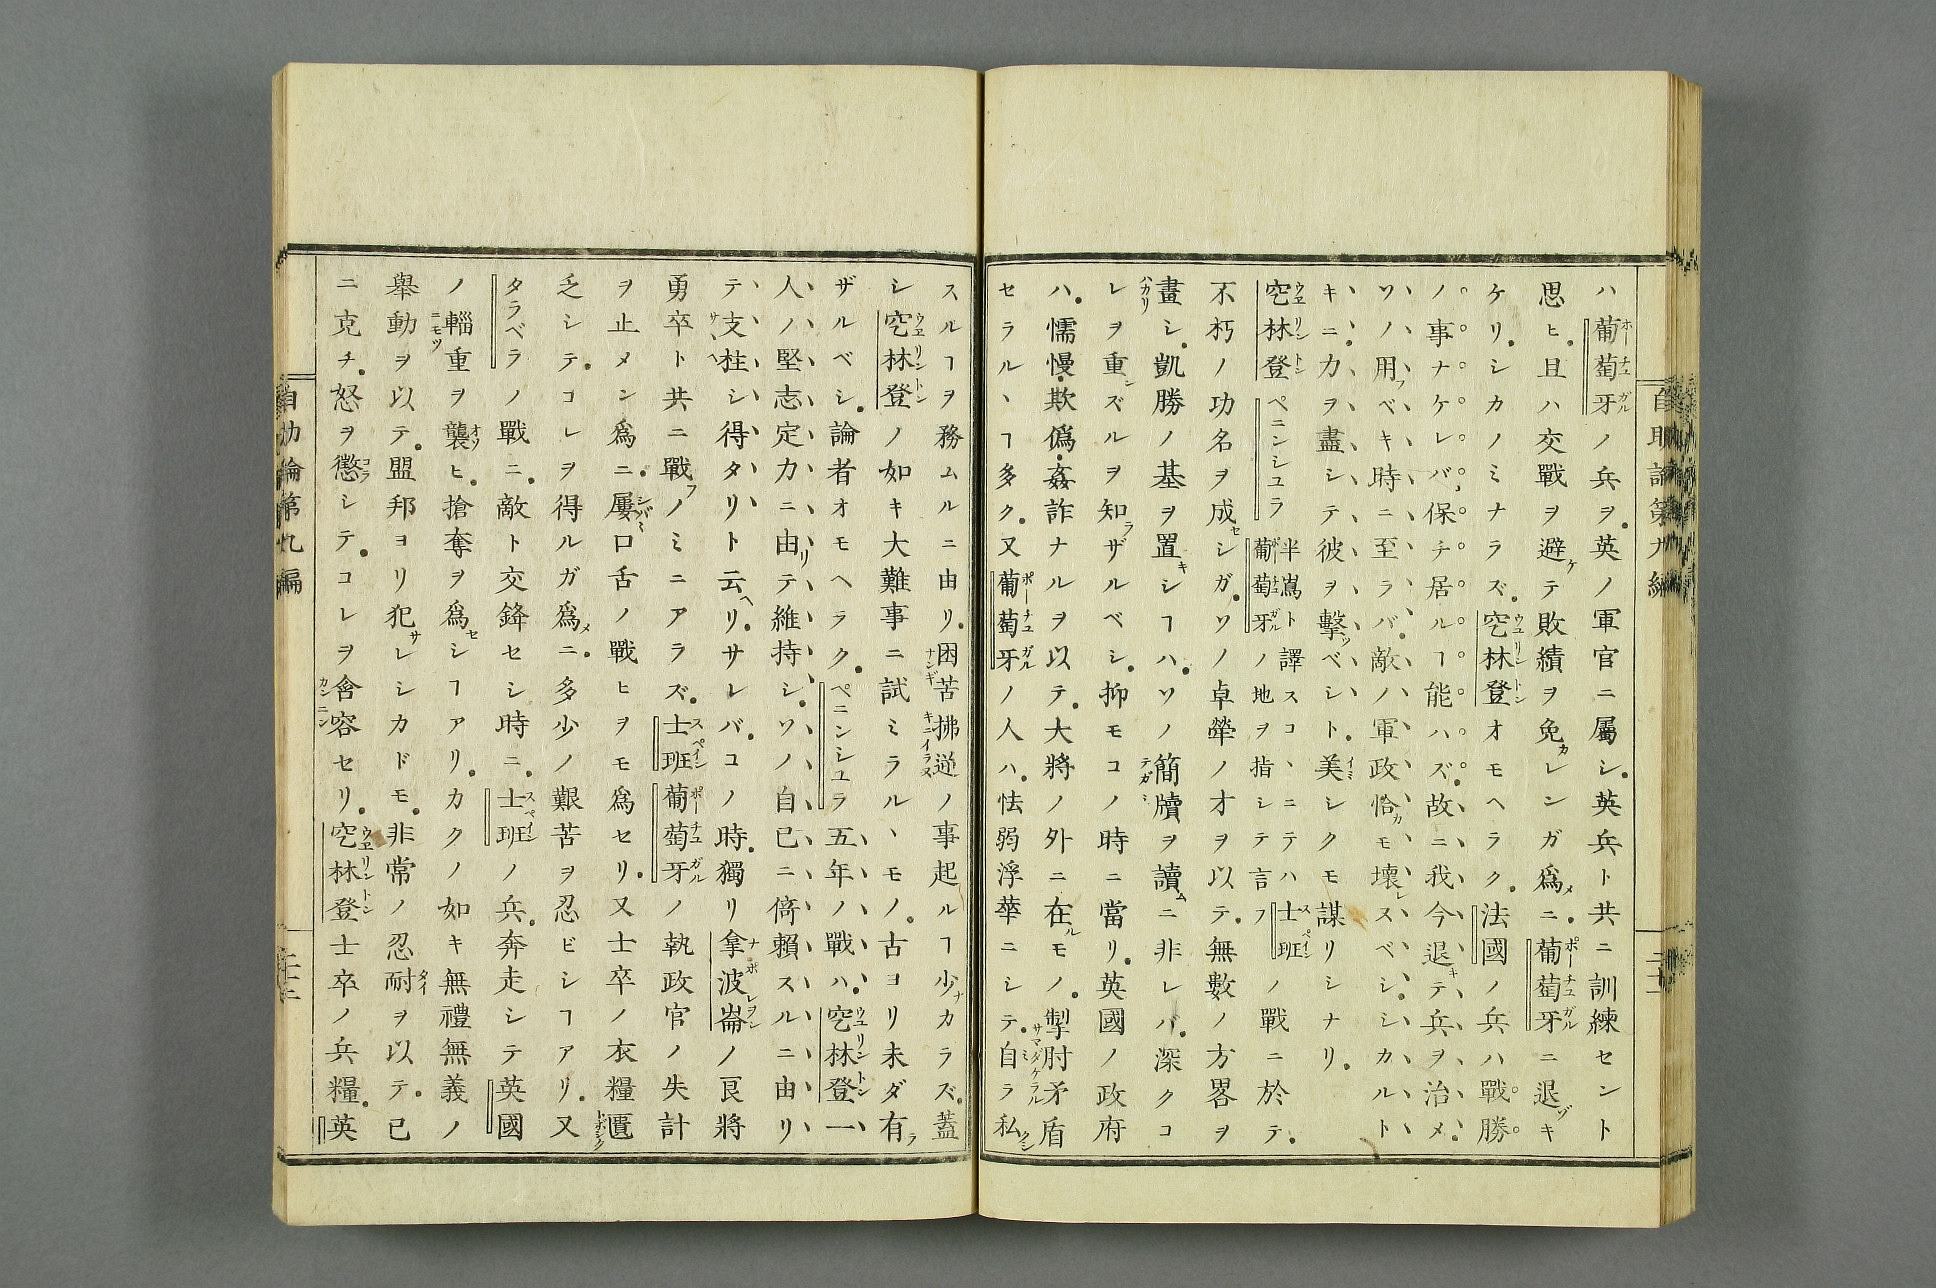 自助論第九編
二十一
ハ葡萄牙ノ兵ヲ英ノ軍官ニ屬シ英兵ト共ニ訓練セント
思ヒ且ハ交戰ヲ避ケテ敗績ヲ免カレンガ爲メニ葡萄牙ニ退ヅキ
ケリシカノミナラズ空林登オモヘラク法國ノ兵ハ戰勝
ノ事ナケレバ保チ居ルヿ能ハズ故ニ我今退キテ兵ヲ治メ
ソノ用フベキ時ニ至ラバ敵ノ軍政恰カモ壞レスベシシカルト
キニ力ヲ盡シテ彼ヲ擊ツベシト美イミシクモ謀リシナリ
空林登ペニンシユラ半嶌ト譯スコヽニテハ士班葡萄牙ノ地ヲ指シテ言フノ戰ニ於テ
不朽ノ功名ヲ成セシガソノ卓犖ノ才ヲ以テ無數ノ方畧ヲ
畫シ凱勝ノ基ヲ置キシヿハソノ簡牘ヲ讀ムニ非レバ深クコ
レヲ重シズルヲ知ラザルベシ抑モコノ時ニ當リ英國ノ政府
ハ懦慢欺僞姦詐ナルヲ以テ大將ノ外ニ在ルモノ掣肘矛盾
セラルヽヿ多ク又葡萄牙ノ人ハ怯弱浮華ニシテ自ミラ私クシ
スルヿヲ務ムルニ由リ困苦拂逆ノ事起ルヿ少ナカラズ蓋
シ空林登ノ如キ大難事ニ試ミラルヽモノ古ヨリ未ダ有ラ
ザルベシ論者オモヘラクペニンシユラ五年ノ戰ハ空林登一
人ノ堅志定力ニ由リテ維持シソノ自已ニ倚賴スルニ由リ
テ支柱シ得タリト云ヘリサレバコノ時獨リ拿波崙ノ良將
勇卒ト共ニ戰フノミニアラズ士班葡萄牙ノ執政官ノ失計
ヲ止メン爲ニ屢口舌ノ戰ヒヲモ爲セリ又士卒ノ衣糧匱
乏シテコレヲ得ルガ爲メニ多少ノ艱苦ヲ忍ビシヿアリ又
タラベラノ戰ニ敵ト交鋒セシ時ニ士班ノ兵奔走シテ英國
ノ輜重ヲ襲ヒ搶奪ヲ爲セシヿアリカクノ如キ無禮無義ノ
舉動ヲ以テ盟邦ヨリ犯サレシカドモ非常ノ忍耐ヲ以テ已
ニ克チ怒ヲ懲シテコレヲ含容セリ空林登士卒ノ兵糧英
自助論第九編